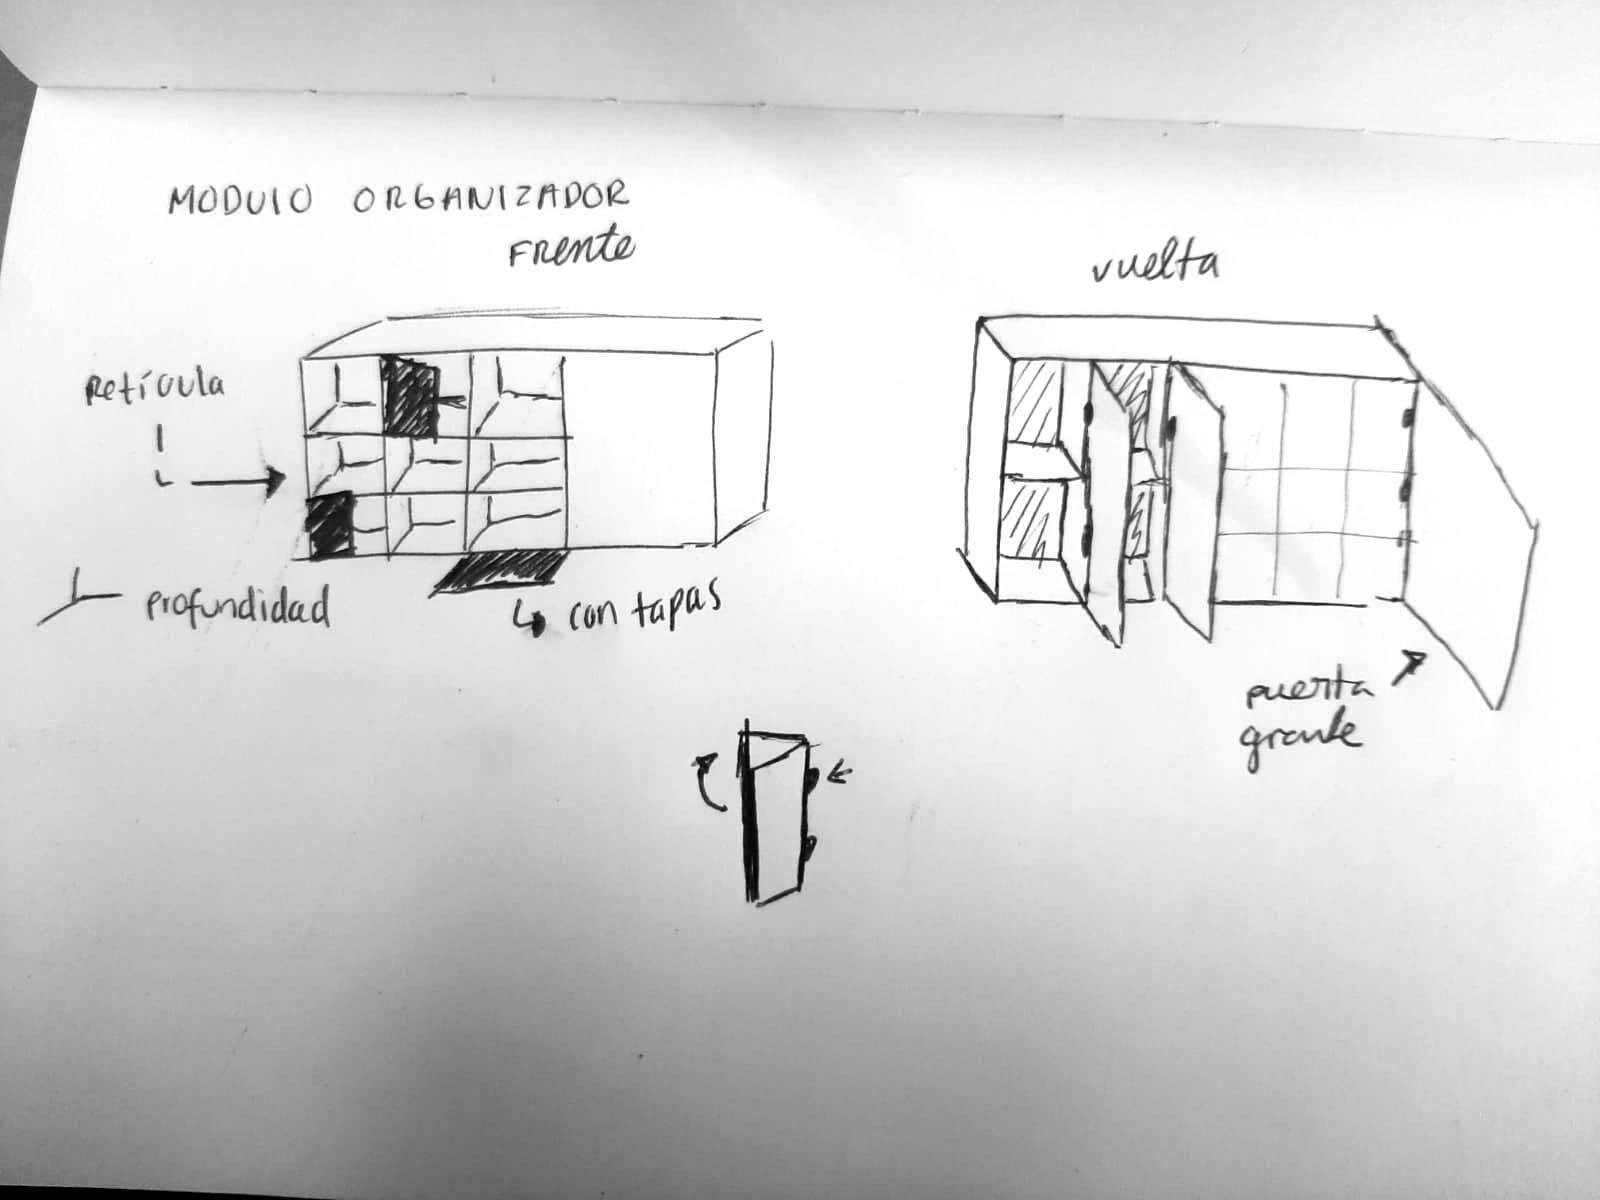 MODULO ORGANIZADOR
FRente
vuelta
Retícula
profundidad
con tapas
puerta
grande